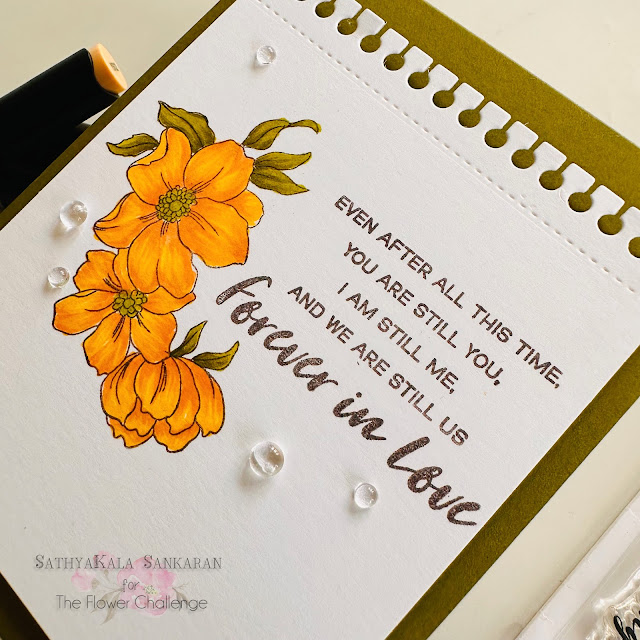 EVEN AFTER ALL THIS TIME,
YOU ARE STILL YOU,
I AM STILL ME,
AND WE ARE STILL US
forever in love
SATHYAKALA SANKARAN
for
The Flower Challenge